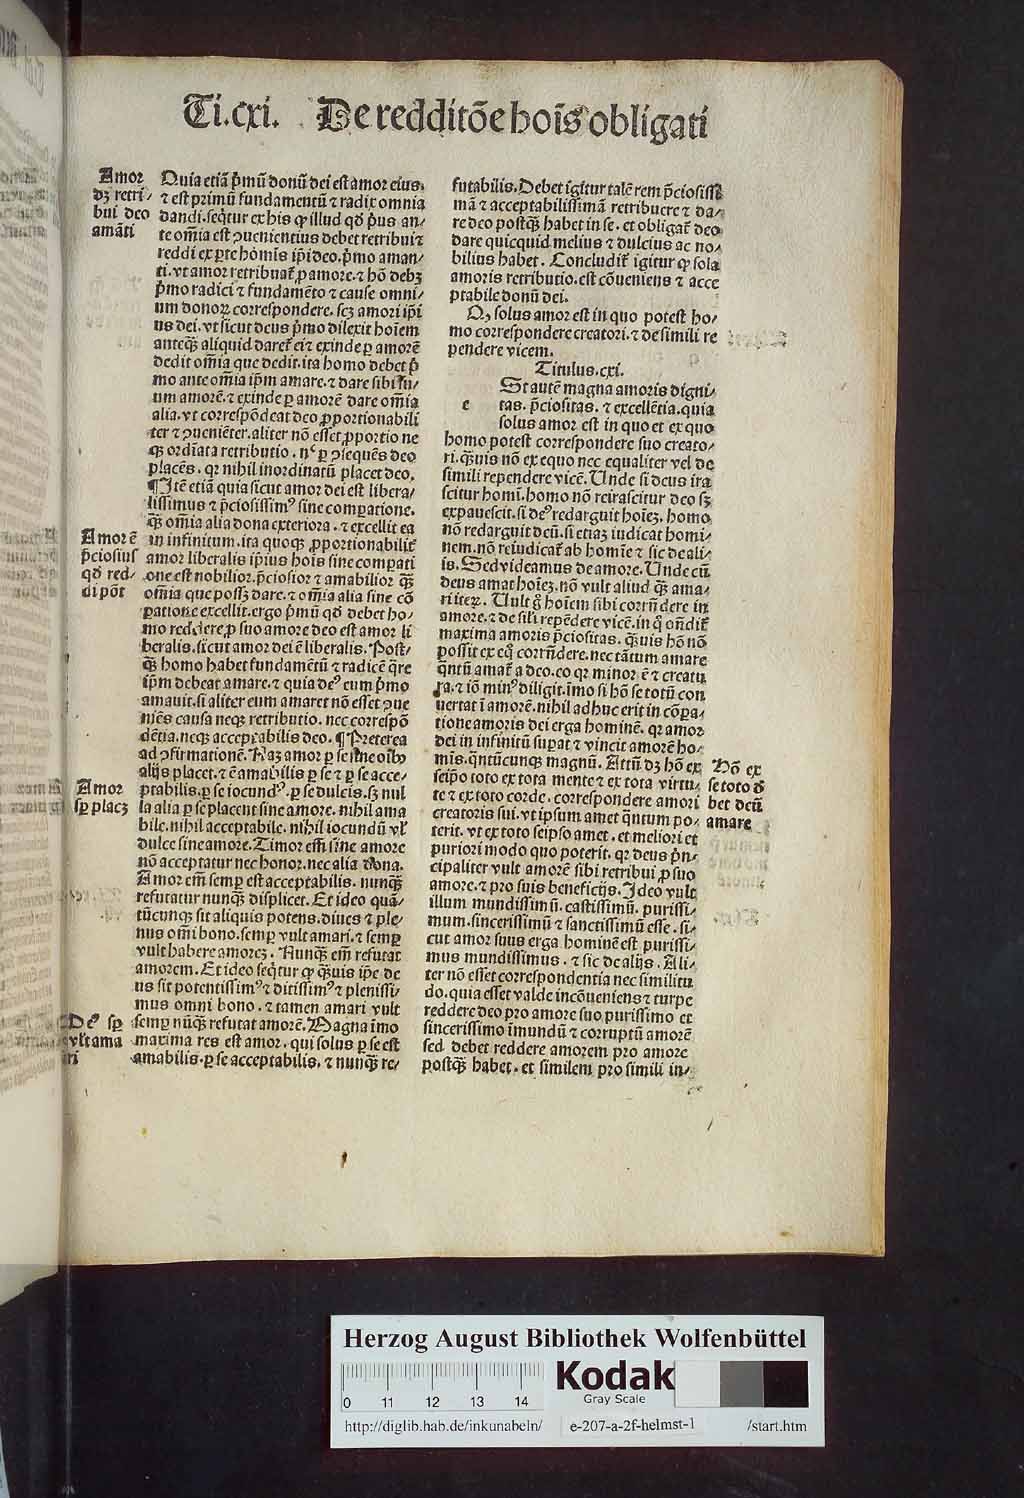 Ti.cxi. De redditōe hoīs obligati
Amor
dꝫ retri/
bui deo
amāti
Quia etiā pͥmū donū dei est amor eius,
⁊ est primū fundamentū ⁊ radix omnia
dandi. seqͥtur ex his ꝙ illud qd̄ pͥus an/
te om̄ia est ꝯuenientius debet retribui ⁊
reddi ex ꝑte hōmis ip̄i deo. pͥmo aman/
ti. vt amor retribuat̄ ꝓ amore. ⁊ hō debꝫ
pͥmo radici ⁊ fundamēto ⁊ cause omni/
um donoꝝ correspondere. scꝫ amori ip̄i
us dei. vt sicut deus pͥmo dilexit hoīem
anteq̄ꝫ aliquid daret̄ ei ⁊ exinde ꝑ amorē
dedit om̄ia que dedit. ita homo debet pͥ
mo ante om̄ia ip̄m amare. ⁊ dare sibi su/
um amorē. ⁊ exinde ꝑ amorē dare om̄ia
alia. vt correspōdeat deo ꝓportionabili
ter ⁊ ꝯueniēter. aliter nō esset ꝓportio ne
qꝫ ordīata retributio. nec ꝑ ꝯseq̄uēs deo
placēs. qꝛ nihil inordinatū placet deo.
¶ Itē etiā quia sicut amor dei est libera/
lissimus ⁊ p̄ciosissimꝰ sine comꝑatione.
q̄ꝫ om̄ia alia dona exteriora. ⁊ excellit ea
in infinitum. ita quoqꝫ ꝓportionabilit̄
Amor ē
p̄ciosius
qd̄ red/
di pōt
amor liberalis ip̄ius hoīs sine comꝑati
one est nobilior. p̄ciosior ⁊ amabilior q̄ꝫ
om̄ia que possꝫ dare. ⁊ om̄ia alia sine cō
ꝑatione excellit. ergo pͥmū qd̄ debet ho/
mo reddere ꝓ suo amore deo est amor li
beralis. sicut amor dei ē liberalis. Post/
q̄ꝫ homo habet fundamētū ⁊ radicē q̄re
ip̄m debeat amare. ⁊ quia deꝰ eum pͥmo
amauit. si aliter eum amaret nō esset ꝯue
niēs causa neqꝫ retributio. nec correspō
dētia. neqꝫ acceptabilis deo. ¶ Preterea
ad ꝯfirmationē. Nāꝫ amor ꝑ se sine oībꝰ
alijs placet. ⁊ ē amabilis ꝑ se ⁊ ꝑ se acce/
Amor
sꝑ placꝫ
ptabilis. ꝑ se iocundꝰ. ꝑ se dulcis. sꝫ nul
la alia ꝑ se placent sine amore. nihil ama
bile. nihil acceptabile. nihil iocundū vl̄
dulce sine amore. Timor em̄ sine amore
nō acceptatur nec honor. nec alia dona.
Amor em̄ semꝑ est acceptabilis. nunq̄ꝫ
refutatur nunq̄ꝫ displicet. Et ideo quā/
tūcunqꝫ sit aliquis potens. diues ⁊ ple/
nus om̄i bono. semꝑ vult amari. ⁊ semꝑ
vult habere amorē. Nunq̄ꝫ em̄ refutat
amorem. Et ideo seqͥtur ꝙ q̄ꝫuis ip̄e de
us sit potentissimꝰ ⁊ ditissimꝰ ⁊ plenissi/
mus omni bono. ⁊ tamen amari vult
Deꝰ sꝑ
vl̄t ama
ri
semꝑ nūq̄ꝫ refutat amorē. Magna īmo
maxima res est amor. qui solus ꝑ se est
amabilis. ꝑ se acceptabilis. ⁊ nunq̄ꝫ re/
futabilis. Debet igitur talē rem p̄ciosissi
mā ⁊ acceptabilissimā retribuere ⁊ da/
re deo postq̄ꝫ habet in se. et obligat̄ deo
dare quicquid melius ⁊ dulcius ac no/
bilius habet. Concludit̄ igitur ꝙ sola
amoris retributio. est cōueniens ⁊ acce
ptabile donū dei.
Qꝫ solus amor est in quo potest ho/
mo correspondere creatori. ⁊ de simili re
pendere vicem.
Titulus. cxi.
e
St autē magna amoris digni/
tas. p̄ciositas. ⁊ excellētia. quia
solus amor est in quo et ex quo
homo potest correspondere suo creato/
ri. q̄ꝫuis nō ex equo nec equaliter vel de
simili rependere vicē. Unde si deus ira
scitur homī. homo nō reirascitur deo sꝫ
expauescit. si deꝰ redarguit hoīeꝫ. homo
nō redarguit deū. si etiaꝫ iudicat homi/
nem. nō reiudicat̄ ab homīe ⁊ sic de ali/
is. Sed videamus de amore. Unde cū
deus amat hoīeꝫ. nō vult aliud q̄ꝫ ama/
ri iteꝝ. Uult gͦ hoīem sibi corrn̄dere in
amore. ⁊ de sil̄i repēdere vicē. in qͦ on̄dit̄
maxima amoris p̄ciositas. q̄ꝫuis hō nō
possit ex eqͦ corrn̄dere. nec tātum amare
qͣntū amat̄ a deo. eo qꝛ minor ē ⁊ creatu
ra. ⁊ iō minꝰ diligit. īmo si hō se totū con
uertat ī amorē. nihil adhuc erit in cōꝑa/
tione amoris dei erga hominē. qꝛ amor
dei in infinitū suꝑat ⁊ vincit amorē ho/
mīs. qͣntūcunqꝫ magnū. Attū dꝫ hō ex
Hō ex
se toto dꝫ
bet deū
amare
seip̄o toto ex tota mente ⁊ ex tota virtu/
te ⁊ ex toto corde. correspondere amori
creatoris sui. vt ipsum amet qͣntum po/
terit. vt ex toto seipso amet. et meliori et
puriori modo quo poterit. qꝛ deus pͥn/
cipaliter vult amorē sibi retribui ꝓ suo
amore. ⁊ pro suis beneficijs. Ideo vult
illum mundissimū. castissimū. purissi/
mum. sincerissimū ⁊ sanctissimū esse. si/
cut amor suus erga hominē est purissi/
mus mundissimus. ⁊ sic de alijs. Ali/
ter nō esset correspondentia nec similitu
do. quia esset valde incōueniens ⁊ turpe
reddere deo pro amore suo purissimo et
sincerissimo īmundū ⁊ corruptū amorē
sed debet reddere amorem pro amore
postq̄ꝫ habet. et similem pro simili in/
Herzog August Bibliothek Wolfenbüttel
Kodak
Gray Scale
0 11 12 13 14
http://diglib.hab.de/inkunabeln/ e-207-a-2f-helmst-1 /start.htm